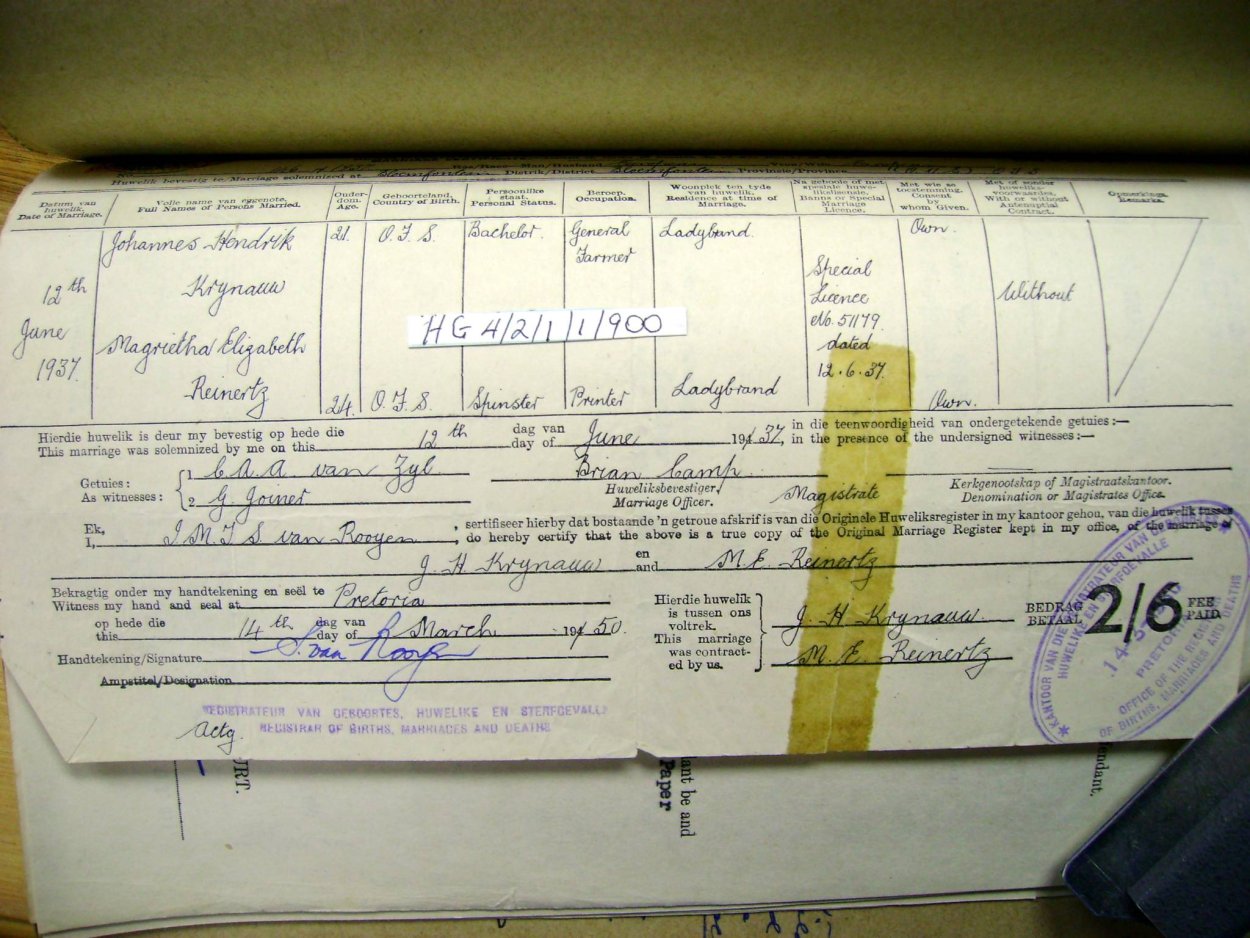 Huwelik bevestig te/Marriage solemnized at Bloemfontein Distrik/District Bloemfontein
Datum van huwelik.
Date of Marriage.
Volle name van eggenote.
Full Names of Persons Married.
Ouder-
dom.
Age.
Geboorteland.
Country of Birth.
Persoonlike
staat.
Personal Status.
Beroep.
Occupation.
Woonplek ten tyde
van huwelik.
Residence at time of
Marriage.
Na gebooie of met
spesiale huwe-
likslisensie.
Banns or Special
Marriage
Licence.
Met wie se
toestemming.
Consent
by
whom Given.
Met of sonder
huweliks-
voorwaardes.
With or without
Antenuptial
Contract.
Opmerkings.
Remarks.
12th
June
1937.
Johannes Hendrik
Krynauw
21. O.F.S. Bachelor. General
Farmer
Ladybrand.
Own.
Special
Licence
No. 51179.
dated
12.6.37.
Without
HG 4/2/1/1/900
Magrietha Elizabeth
Reinertz
24. O.F.S. Spinster Printer Ladybrand Own.
Hierdie huwelik is deur my bevestig op hede die
This marriage was solemnized by me on this 12th dag van
day of June 1937, in die teenwoordigheid van ondergetekende getuies:—
in the presence of the undersigned witnesses:—
Getuies:
As witnesses:
1. C A A van Zyl
2. G. Joiner
Brian Camp
Huweliksbevestiger,
Marriage Officer.
Magistrate
Kerkgenootskap of Magistraatskantoor.
Denomination or Magistrates Office.
Ek,
I, J M J S van Rooyen, sertifiseer hierby dat bostaande 'n getroue afskrif is van die Originele Huweliksregister in my kantoor gehou, van die huwelik tussen
do hereby certify that the above is a true copy of the Original Marriage Register kept in my office, of the marriage of
J. H. Krynauw en
and M.E. Reinertz
Bekragtig onder my handtekening en seël te
Witness my hand and seal at Pretoria
op hede die
this 14th dag van
day of March 1950.
Handtekening/Signature S. van Rooyen
Ampstitel/Designation
REGISTRATEUR VAN GEBOORTES, HUWELIKE EN STERFGEVALLE
Actg. REGISTRAR OF BIRTHS, MARRIAGES AND DEATHS
Hierdie huwelik
is tussen ons
voltrek.
This marriage
was contract-
ed by us.
J H Krynauw
M. E. Reinertz
BEDRAG
BETAAL 2/6 FEE
PAID
KANTOOR VAN DIE REGISTRATEUR VAN GEBOORTES
HUWELIKE EN STERFGEVALLE
PRETORIA
OFFICE OF THE REGISTRAR
OF BIRTHS, MARRIAGES AND DEATHS
ant be and
Paper